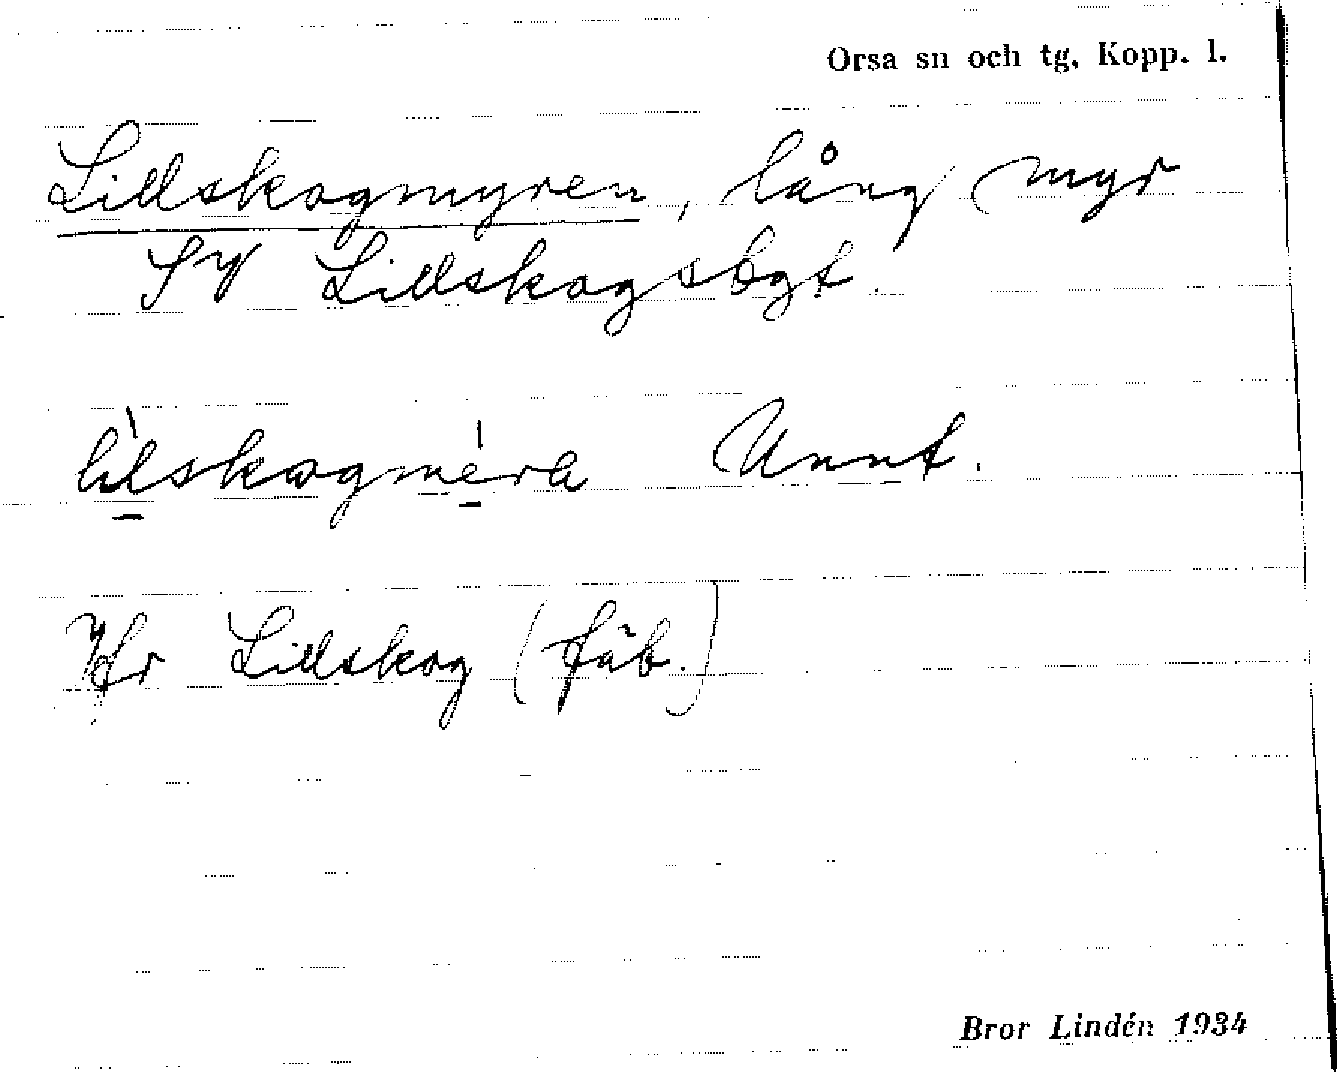 Orsa sn och tg, Kopp. l.
Lillskogmyren, lång myr
SV Lillskogsbgt.
lilskogmera Unnt.
Jfr Lillskog (fäb.)
Bror Lindén 1934